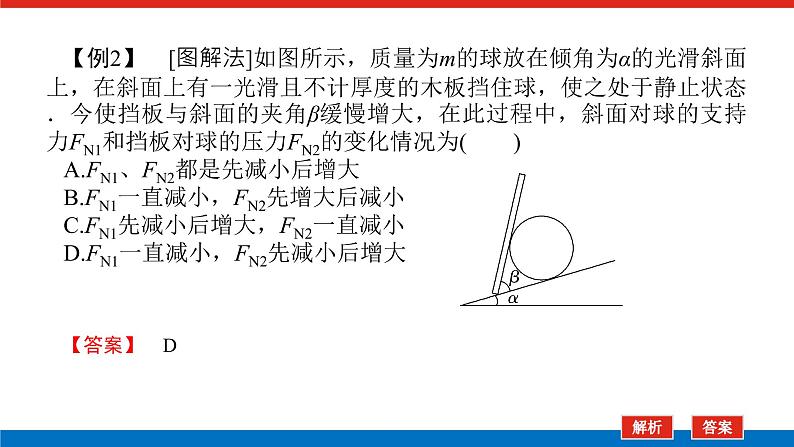 【例2】 [图解法]如图所示，质量为m的球放在倾角为α的光滑斜面
上，在斜面上有一光滑且不计厚度的木板挡住球，使之处于静止状态
．今使挡板与斜面的夹角β缓慢增大，在此过程中，斜面对球的支持
力FN1和挡板对球的压力FN2的变化情况为(  )
A.FN1、FN2都是先减小后增大
B.FN1一直减小，FN2先增大后减小
C.FN1先减小后增大，FN2一直减小
D.FN1一直减小，FN2先减小后增大
β
α
【答案】 D
解析
答案